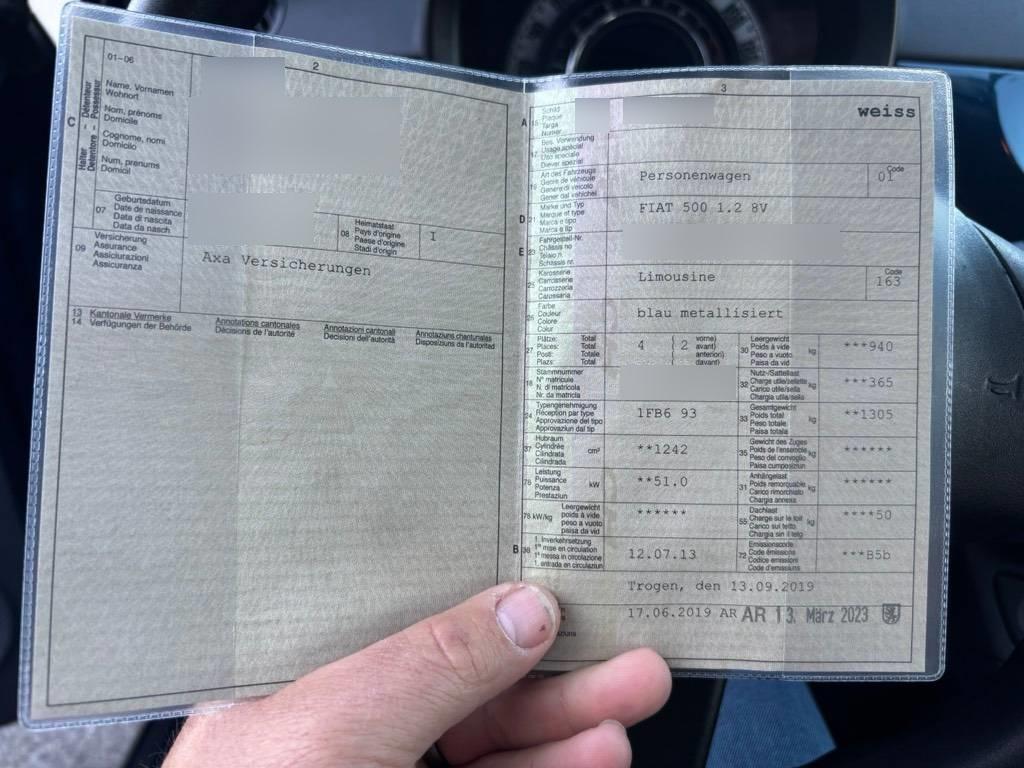 01-06
2
C
Halter - Détenteur
Detentore - Possessur
Name, Vornamen
Wohnort
Nom, prénoms
Domicile
Cognome, nomi
Domicilio
Num, prenums
Domicil
07
Geburtsdatum
Date de naissance
Data di nascita
Data da nasch
08
Heimatstaat
Pays d'origine
Paese d'origine
Stadi d'origin
I
09
Versicherung
Assurance
Assicurazioni
Assicuranza
Axa Versicherungen
13 Kantonale Vermerke
14 Verfügungen der Behörde
Annotations cantonales
Décisions de l'autorité
Annotazioni cantonali
Decisioni dell'autorità
Annotaziuns chantunalas
Disposiziuns da l'autoritad
3
A 15
Schild
Plaque
Targa
Numer
weiss
17
Bes. Verwendung
Usage spécial
Uso speciale
Diever spezial
19
Art des Fahrzeugs
Genre de véhicule
Genere di veicolo
Gener dal vehichel
Personenwagen
Code
01
D 21
Marke und Typ
Marque et type
Marca e tipo
Marca e tip
FIAT 500 1.2 8V
E 23
Fahrgestell-Nr.
Châssis no
Telaio n.
Schassis nr.
25
Karosserie
Carrosserie
Carrozzeria
Carossaria
Limousine
Code
163
26
Farbe
Couleur
Colore
Colur
blau metallisiert
27
Plätze: Total
Places: Total
Posti: Totale
Plazs: Total
4 ( 2 vorne)
avant)
anteriori)
davant)
30
Leergewicht
Poids à vide
Peso a vuoto
Paisa da vid
kg
***940
18
Stammnummer
N° matricule
N. di matricola
Nr. da matricla
32
Nutz-/Sattellast
Charge utile/sellette
Carico utile/sella
Chargia utila/sella
kg
***365
24
Typengenehmigung
Réception par type
Approvazione del tipo
Approvaziun dal tip
1FB6 93
33
Gesamtgewicht
Poids total
Peso totale
Paisa totala
kg
**1305
37
Hubraum
Cylindrée
Cilindrata
Cilindrada
cm³
**1242
35
Gewicht des Zuges
Poids de l'ensemble
Peso del convoglio
Paisa cumposiziun
kg
******
76
Leistung
Puissance
Potenza
Prestaziun
kW
**51.0
31
Anhängelast
Poids remorquable
Carico rimorchiato
Chargia annexa
kg
******
78 kW/kg
Leergewicht
poids à vide
peso a vuoto
paisa da vid
******
55
Dachlast
Charge sur le toit
Carico sul tetto
Chargia sin il tetg
kg
****50
B 36
1. Inverkehrsetzung
1re mise en circulation
1a messa in circolazione
1. entrada en circulaziun
12.07.13
72
Emissionscode
Code émissions
Codice emissioni
Code d'emissiuns
***B5b
Trogen, den 13.09.2019
17.06.2019 AR AR 13. März 2023